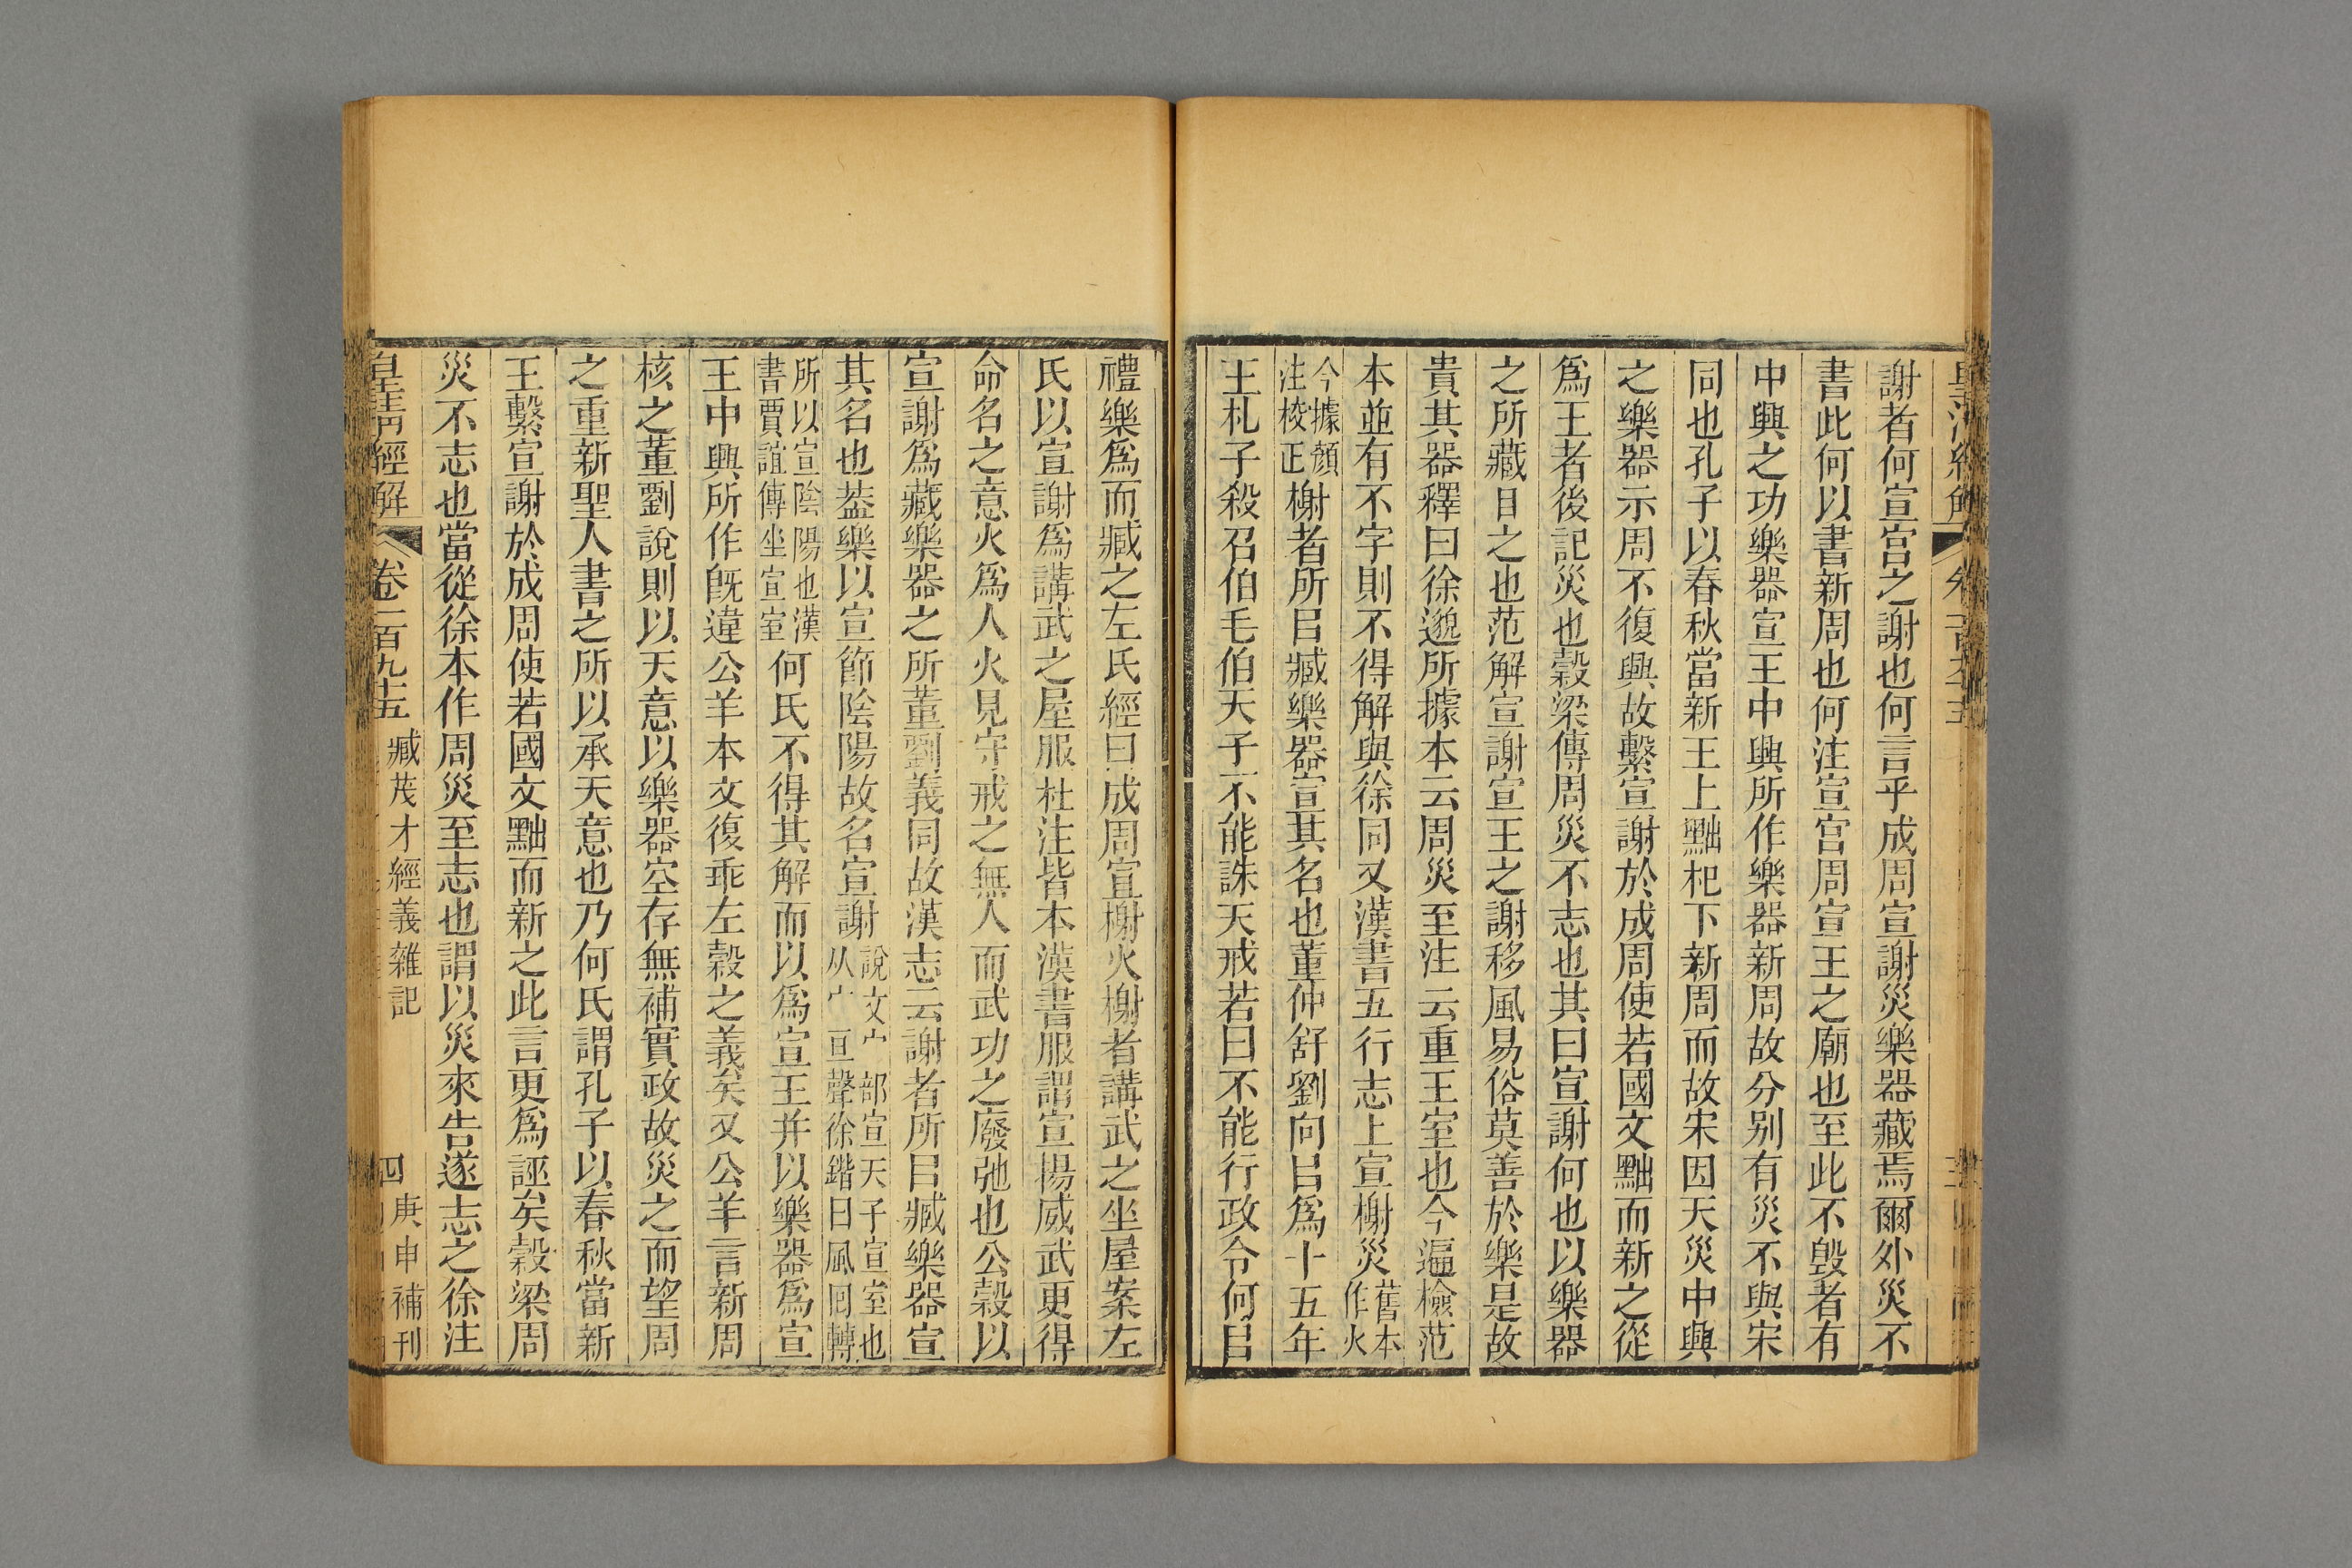 謝者何宣宮之謝也何言乎成周宣謝災樂器藏焉爾外災不
書此何以書新周也何注宣宮周宣王之廟也至此不毀者有
中興之功樂器宣王中興所作樂器新周故分別有災不與宋
同也孔子以春秋當新王上黜杞下新周而故宋因天災中興
之樂器示周不復興故繫宣謝於成周使若國文黜而新之從
爲王者後記災也穀梁傳周災不志也其曰宣謝何也以樂器
之所藏目之也范解宣謝宣王之謝移風易俗莫善於樂是故
貴其器釋曰徐邈所據本云周災至注云重王室也今遍檢范
本並有不字則不得解與徐同又漢書五行志上宣榭災舊本作火
今據顏注校正榭者所㠯臧樂器宣其名也董仲舒劉向㠯爲十五年
王札子殺召伯毛伯天子不能誅天戒若曰不能行政令何㠯
禮樂爲而臧之左氏經曰成周宣榭火榭者講武之坐屋案左
氏以宣謝爲講武之屋服杜注皆本漢書服謂宣揚威武更得
命名之意火爲人火見守戒之無人而武功之廢弛也公穀以
宣謝爲藏樂器之所董劉義同故漢志云謝者所㠯臧樂器宣
其名也葢樂以宣節陰陽故名宣謝說文宀部宣天子宣室也从宀亘聲徐鍇曰風回轉
所以宣陰陽也漢書賈誼傳坐宣室何氏不得其解而以爲宣王幷以樂器爲宣
王中興所作旣違公羊本文復乖左穀之義矣又公羊言新周
核之董劉說則以天意以樂器空存無補實政故災之而望周
之重新聖人書之所以承天意也乃何氏謂孔子以春秋當新
王繫宣謝於成周使若國文黜而新之此言更爲誣矣穀梁周
災不志也當從徐本作周災至志也謂以災來告遂志之徐注
皇清經解 卷二百九十五 臧茂才經義雜記 四 庚申補刊